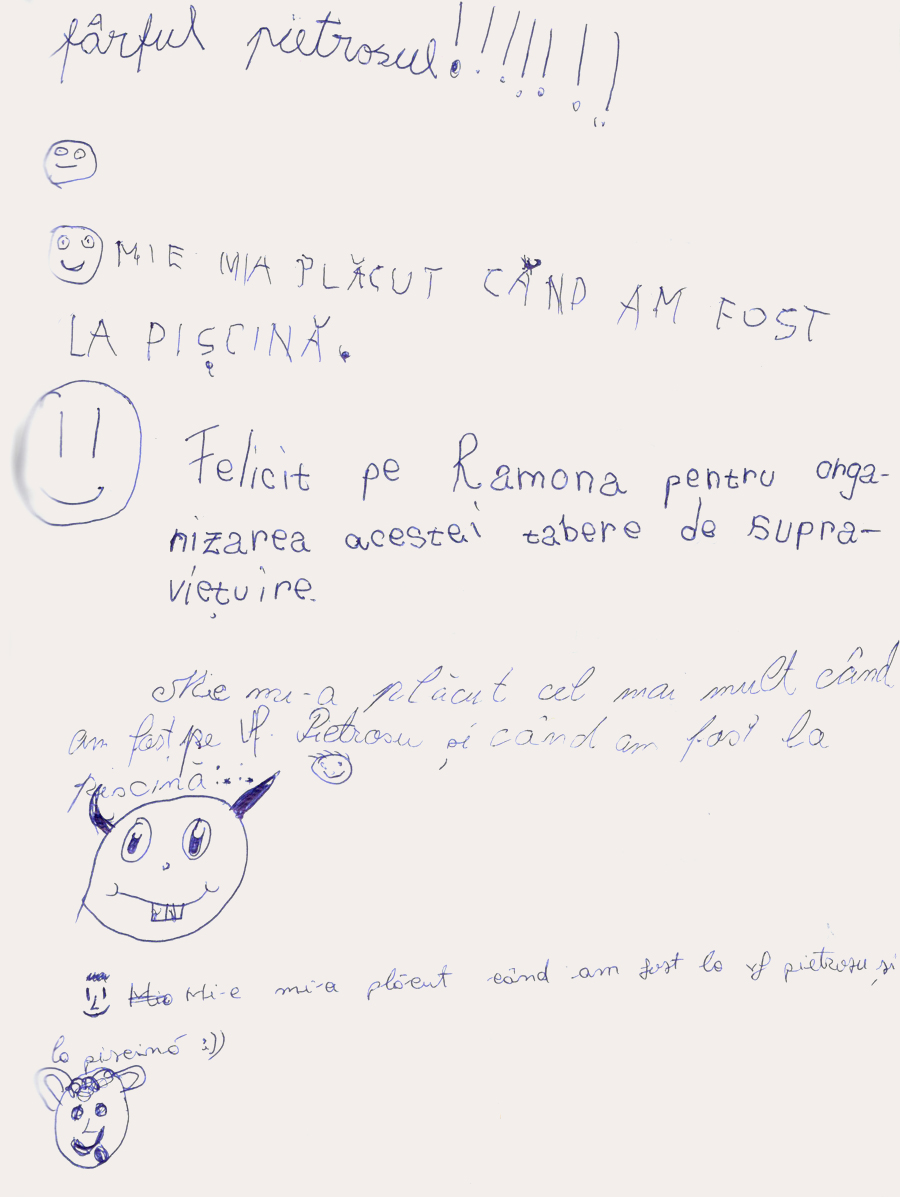 fârful pietrosul!!!!!!!
MIE MIA PLĂCUT CÂND AM FOST
LA PIȘCINĂ.
Felicit pe Ramona pentru orga-
nizarea acestei tabere de supra-
viețuire.
Mie mi-a plăcut cel mai mult când
am fost pe Vf. Pietrosu și când am fost la
piscină
Mie Mi-e mi-a plăcut când am fost la vf pietrosu și
la piscină :))